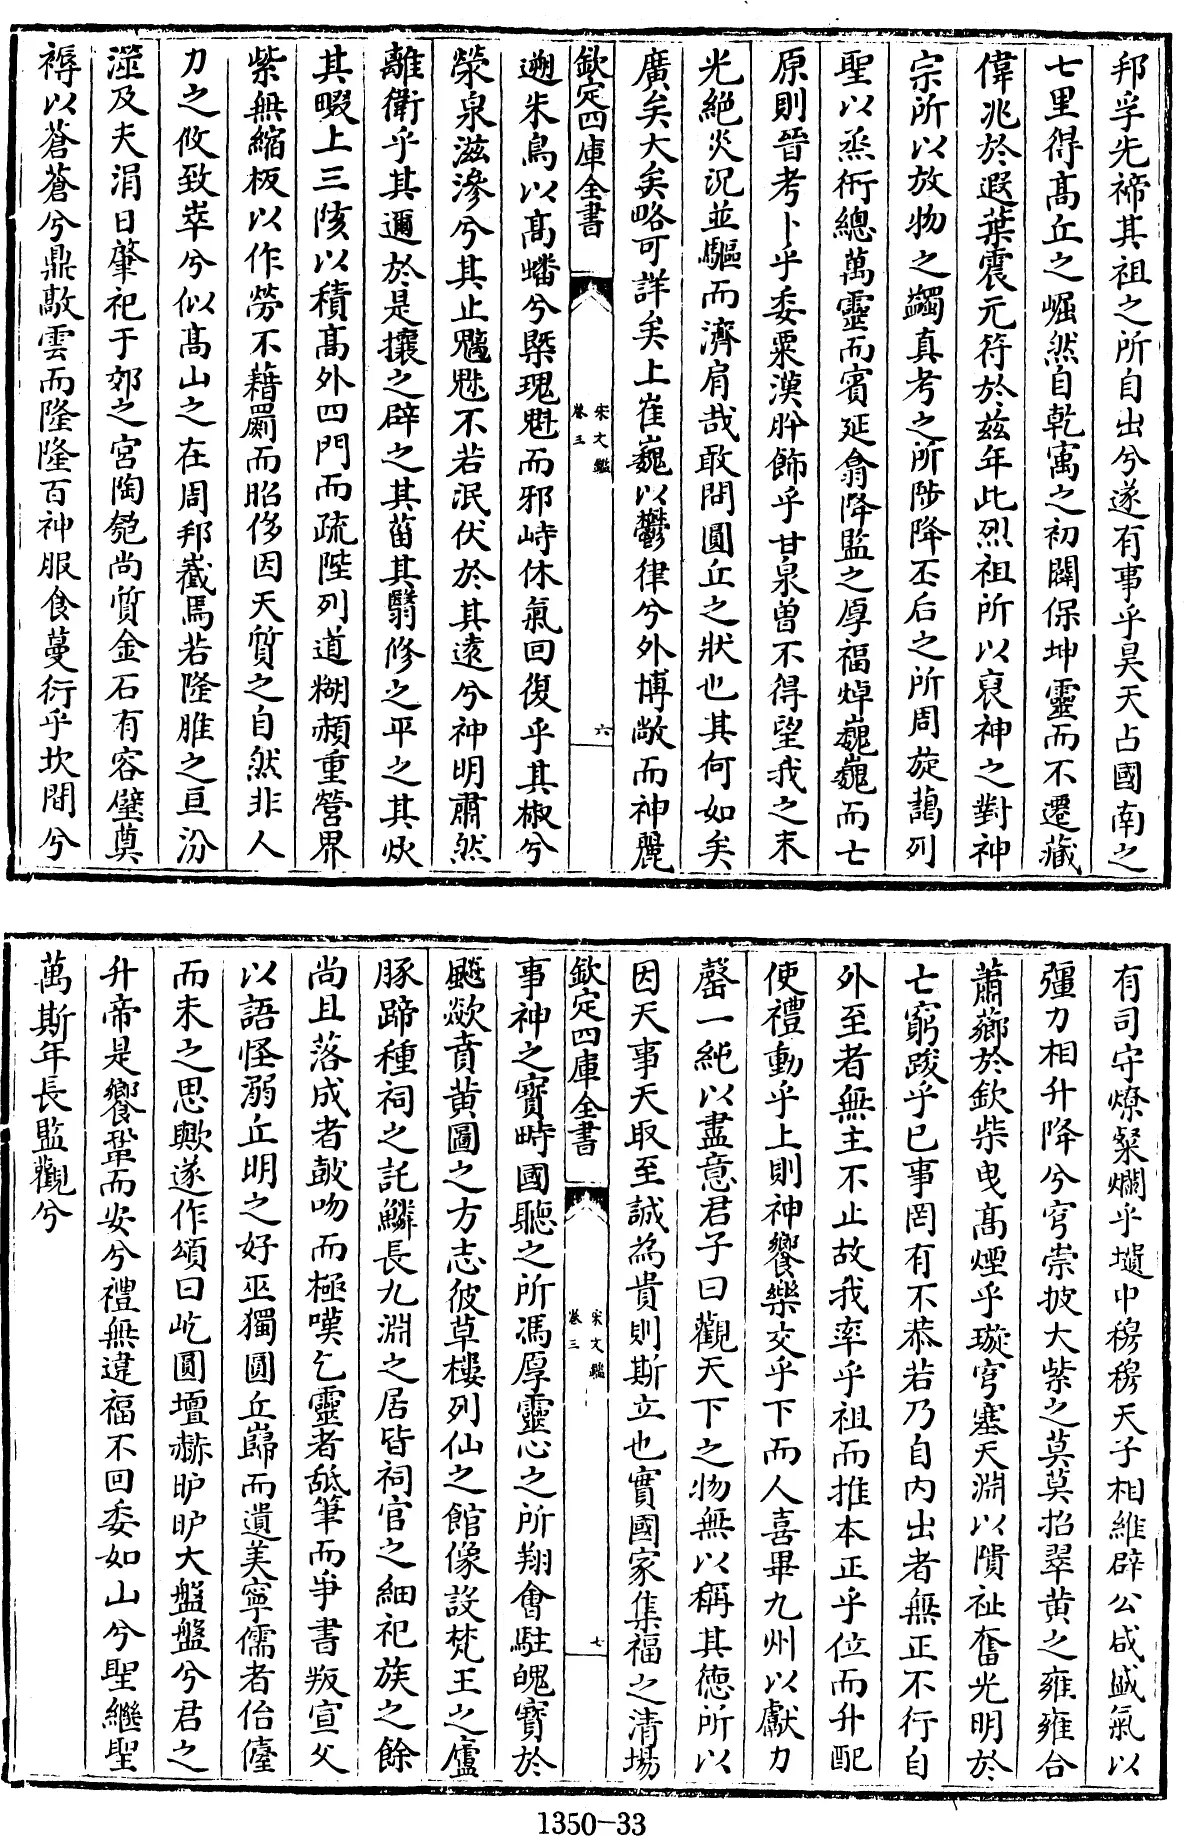 邦孚先禘其祖之所自出兮遂有事乎昊天占國南之
七里得髙丘之崛然自乾寓之初闢保坤靈而不遷藏
偉兆於遐葉震元符於兹年此烈祖所以裒神之對神
宗所以放物之蠲真考之所陟降丕后之所周旋藹列
聖以烝衎總萬靈而賓延翕降監之厚福焯巍巍而七
原則晉考卜乎委粟漢肸飾乎甘泉曽不得望我之末
光絶炎況並驅而濟肩哉敢問圓丘之狀也其何如矣
廣矣大矣略可詳矣上崔巍以鬱律兮外博敞而神麗
欽定四庫全書
宋文鑑
卷三
六
遡朱鳥以髙蟠兮槩瑰魁而邪峙休氣回復乎其椒兮
滎泉滋滲兮其止魑魅不若泯伏於其逺兮神明肅然
離衛乎其邇於是攘之辟之其菑其翳修之平之其炏
其畷上三陔以積髙外四門而疏陛列道糊赬重營界
紫無縮板以作勞不藉罽而昭侈因天質之自然非人
力之攸致崒兮似髙山之在周邦巀焉若隆脽之亘汾
澨及夫涓日肇祀于郊之宮陶匏尚質金石有容璧奠
褥以蒼蒼兮鼎歊雲而隆隆百神服食蔓衍乎坎間兮
有司守燎粲爛乎壝中穆穆天子相維辟公咸盛氣以
彊力相升降兮穹崇披大紫之莫莫招翠黄之雍雍合
蕭薌於欽柴曳髙煙乎璇穹塞天淵以隤祉奮光明於
七窮踆乎已事罔有不恭若乃自内出者無正不行自
外至者無主不止故我率乎祖而推本正乎位而升配
使禮動乎上則神饗樂交乎下而人喜畢九州以獻力
罄一純以盡意君子曰觀天下之物無以稱其徳所以
因天事天取至誠為貴則斯立也實國家集福之清場
欽定四庫全書
宋文鑑
卷三
七
事神之寳畤國聽之所馮厚靈心之所翔會駐皝寳於
飈歘賁黄圖之方志彼草樓列仙之館像設梵王之廬
豚蹄種祠之託鱗長九淵之居皆祠官之細祀族之餘
尚且落成者鼓吻而極嘆乞靈者䑛筆而爭書叛宣父
以語怪溺丘明之好巫獨圓丘巋而遺美寧儒者佁儓
而未之思歟遂作頌曰屹圓壇赫昈昈大盤盤兮君之
升帝是饗鞏而安兮禮無違福不回委如山兮聖繼聖
萬斯年長監觀兮
1350-33